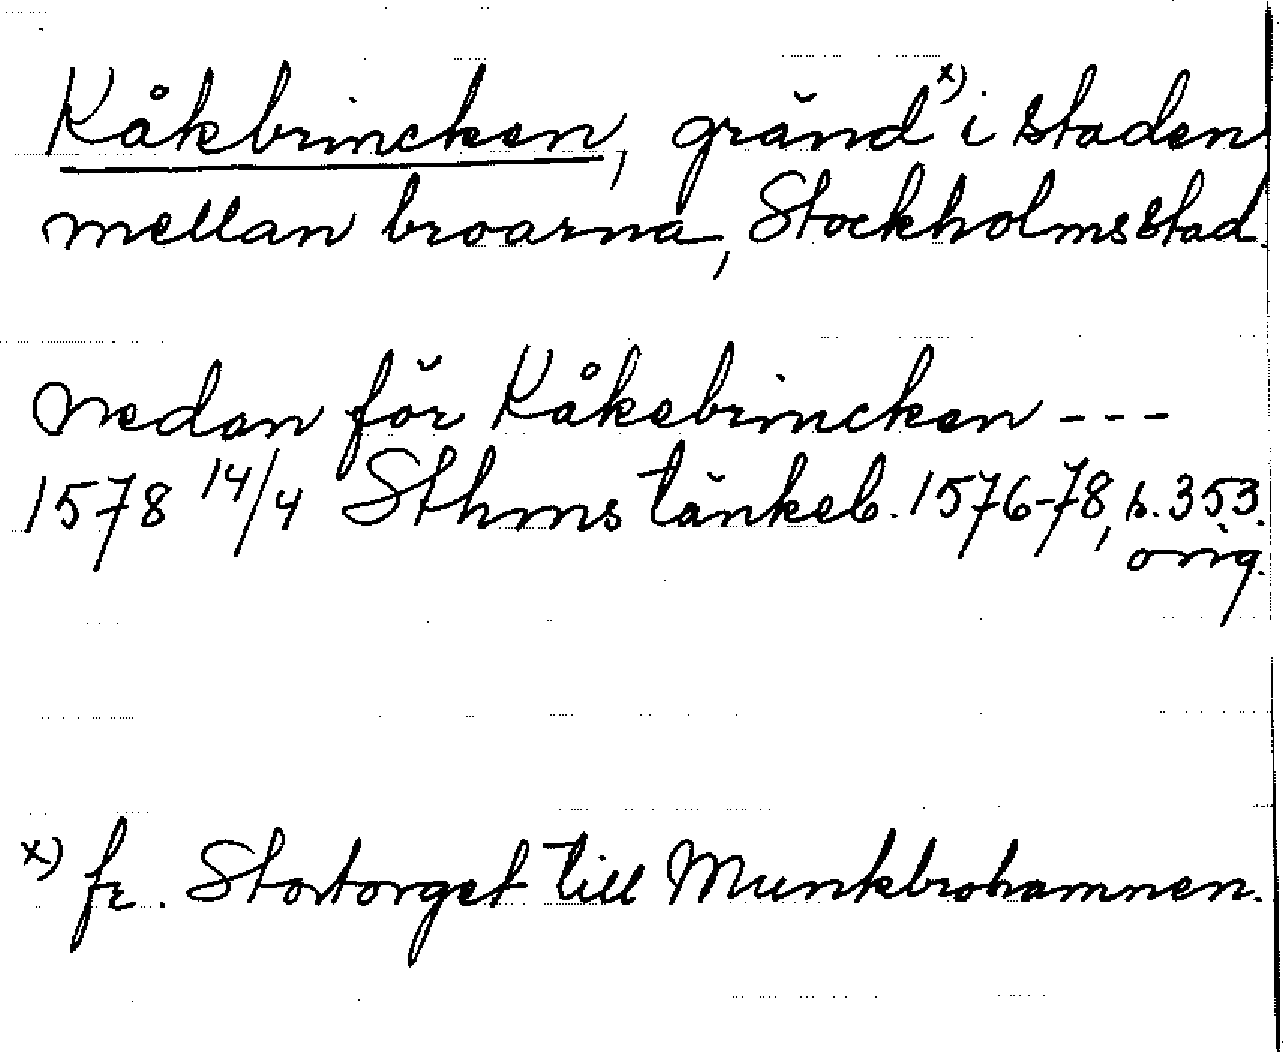 Kåkbrincken, gränd x) i staden
mellan broarna, Stockholms stad.
nedan för Kåkebrincken ---
1578 14/4 Sthms tänkeb. 1576-78, s. 353.
orig.
x) fr. Stortorget till Munkbrohamnen.